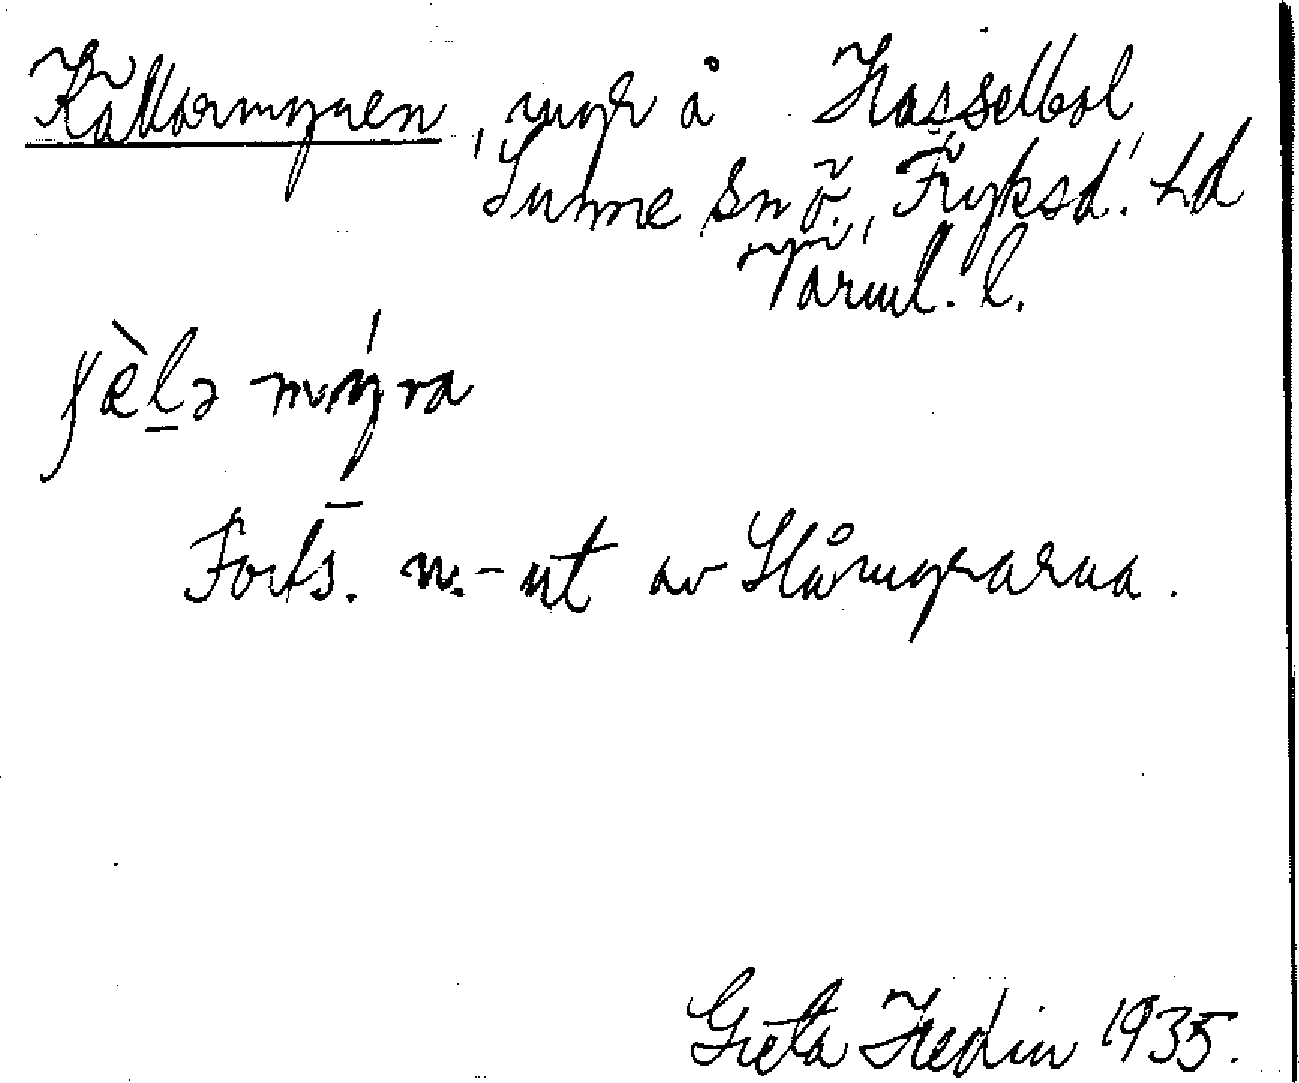 Källarmyren, myr å Hasselbol
Sunne sn ö., Fryksd. hd
Värml. l.
ɟæ̀lə mýra
Forts. n.-ut av Slåmyrarna.
Greta Hedin 1935.